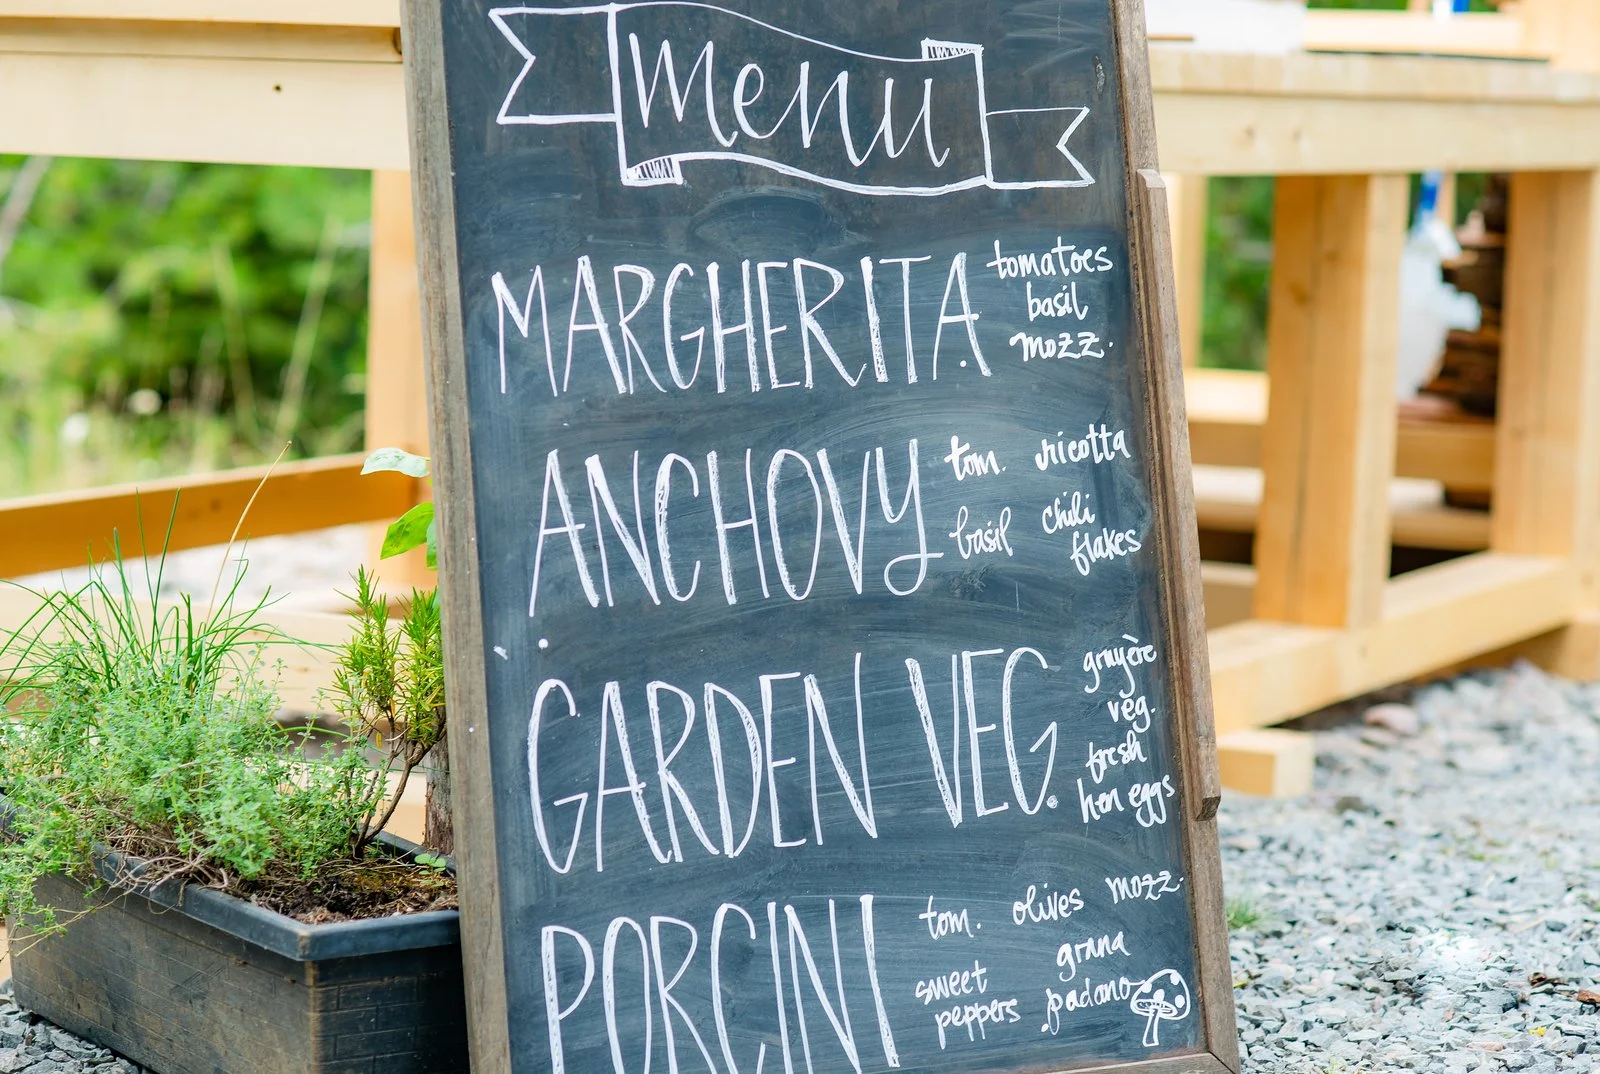 menu
MARGHERITA tomatoes
basil
mozz.
ANCHOVY tom. ricotta
basil chili
flakes
GARDEN VEG. gruyère
veg.
fresh
hen eggs
PORCINI tom. olives mozz.
sweet grana
peppers padano